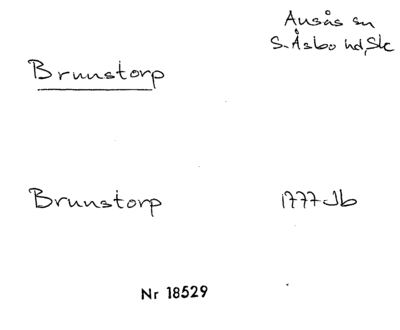 Ausås sn
S. Åsbo hd, Sk
Brunstorp
Brunstorp 1777 Jb
Nr 18529